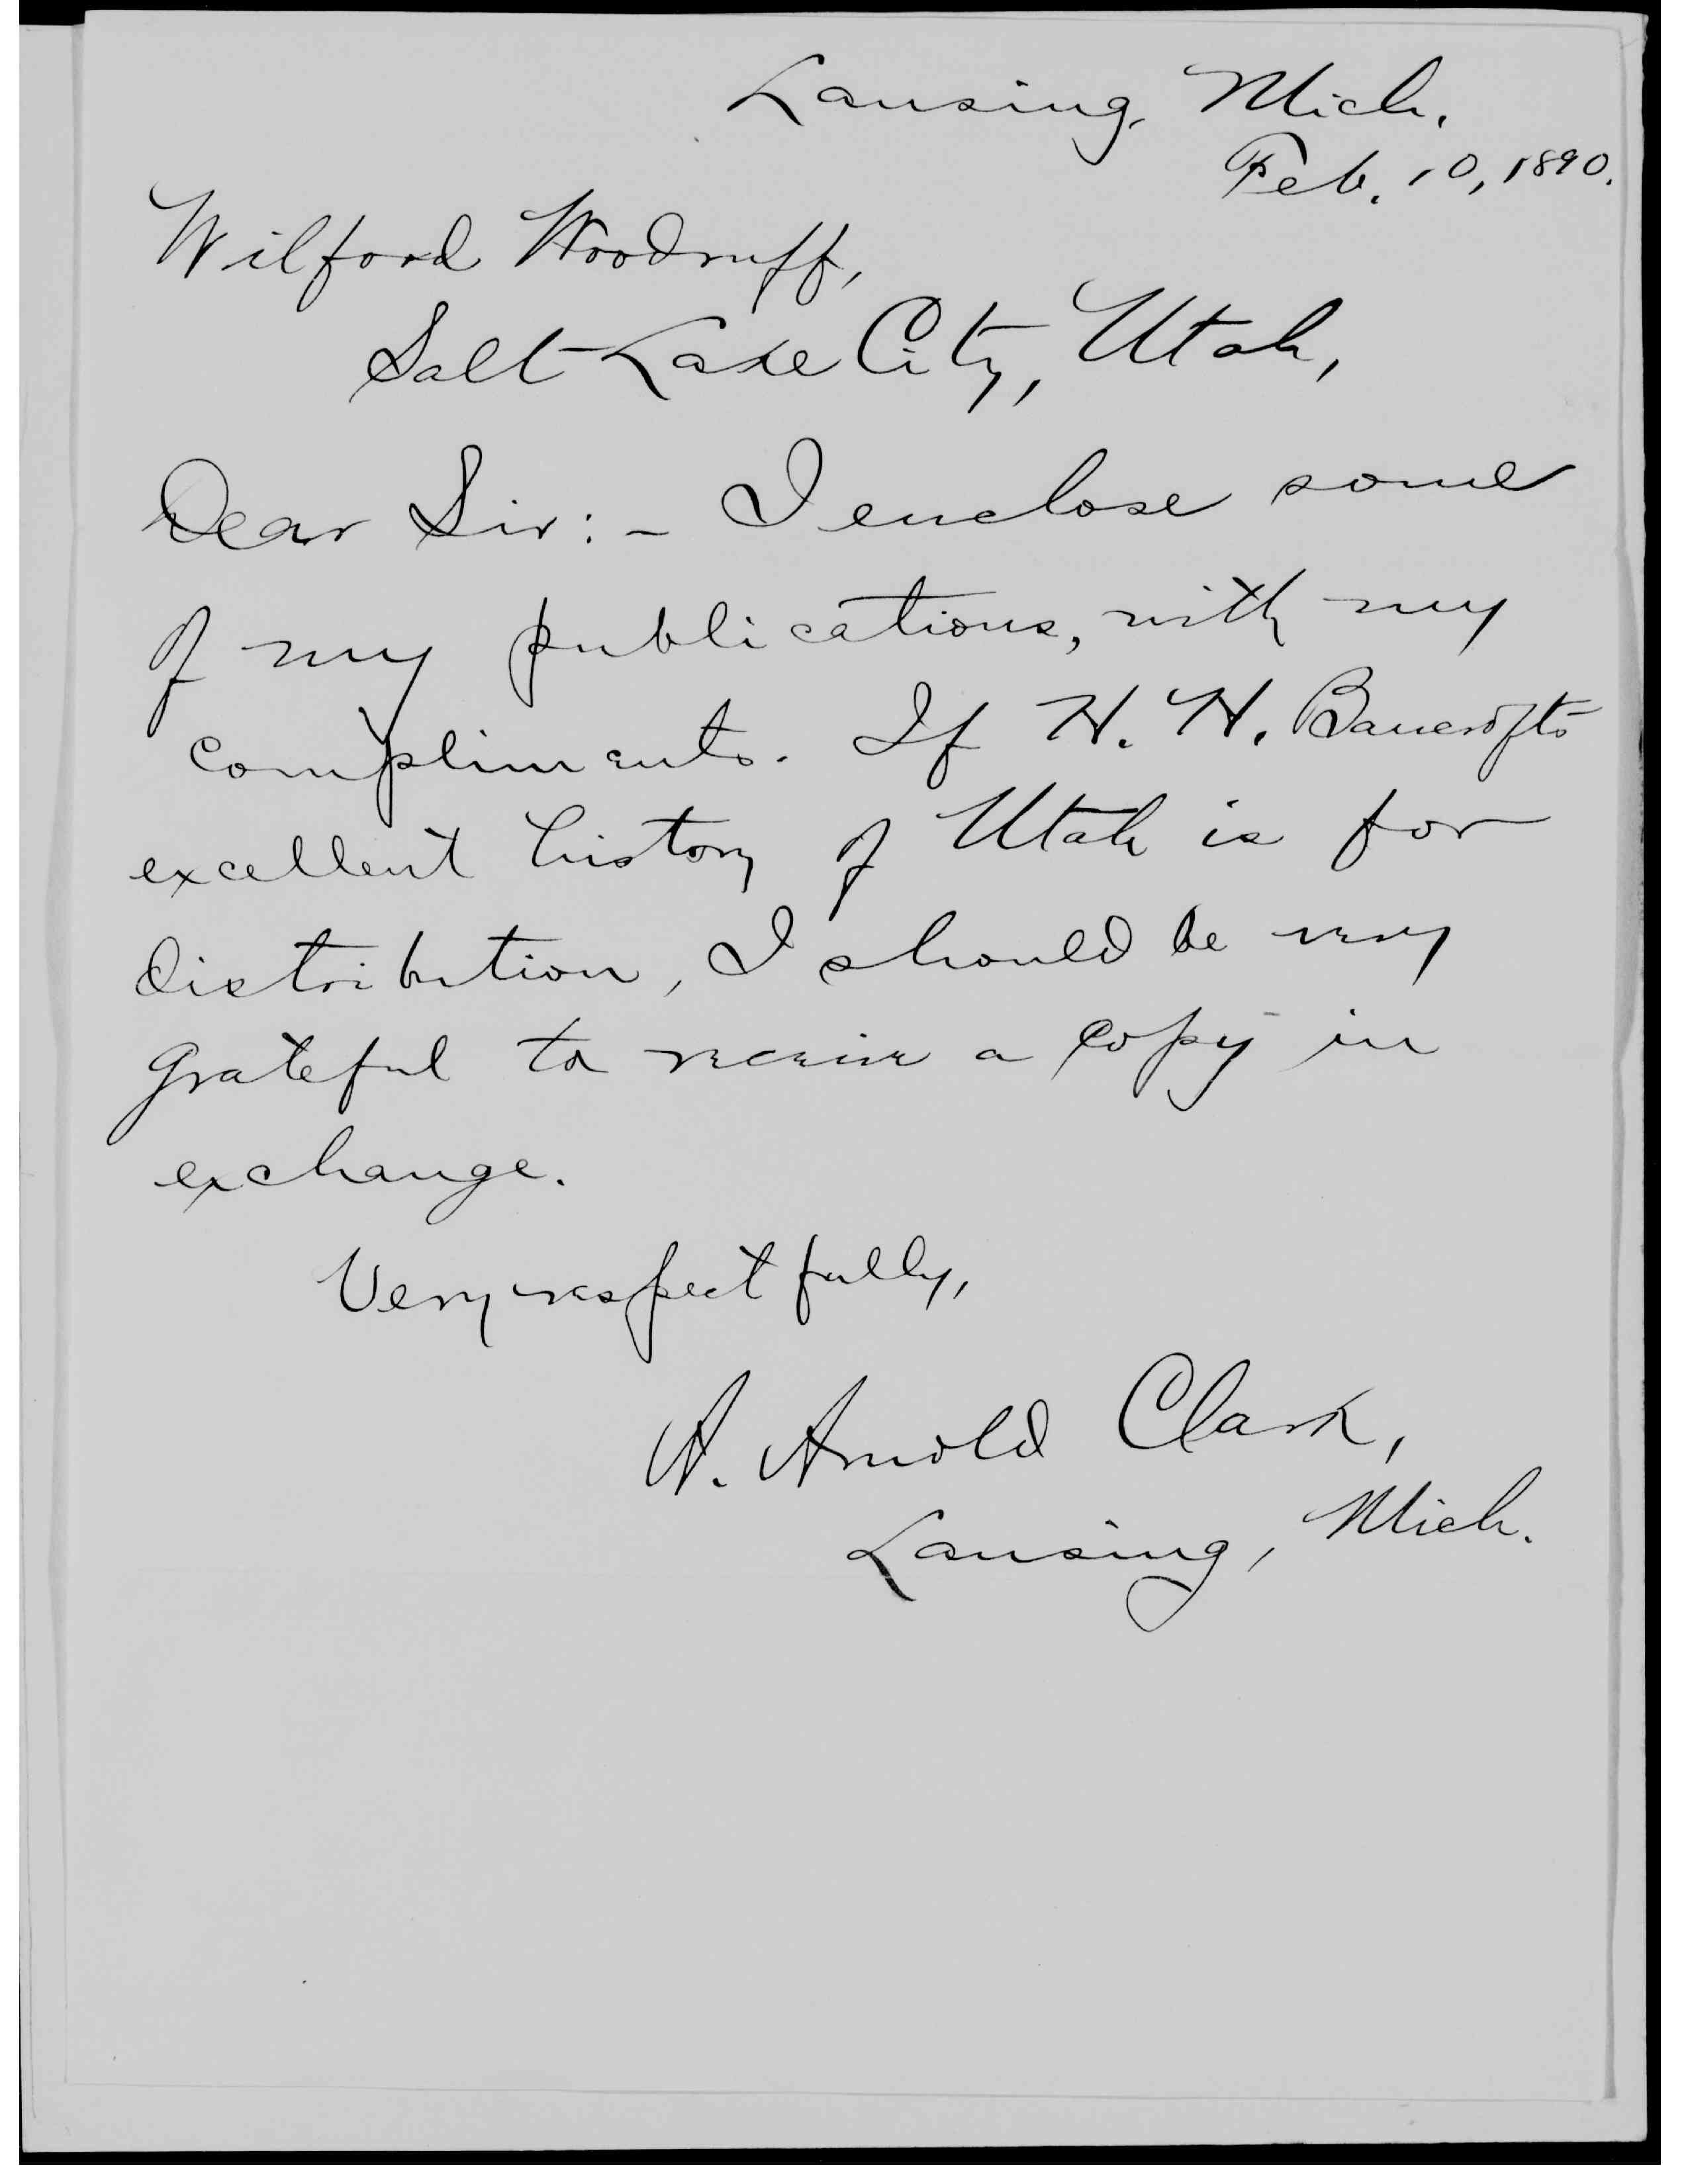 Lansing, Mich.
Feb. 10, 1890.
Wilford Woodruff,
Salt Lake City, Utah,
Dear Sir:- I enclose some
of my publications, with my
compliments. If H. H. Bancrofts
excellent history of Utah is for
distribution, I should be very
grateful to receive a copy in
exchange.
Very respectfully,
A. Arnold Clark,
Lansing, Mich.